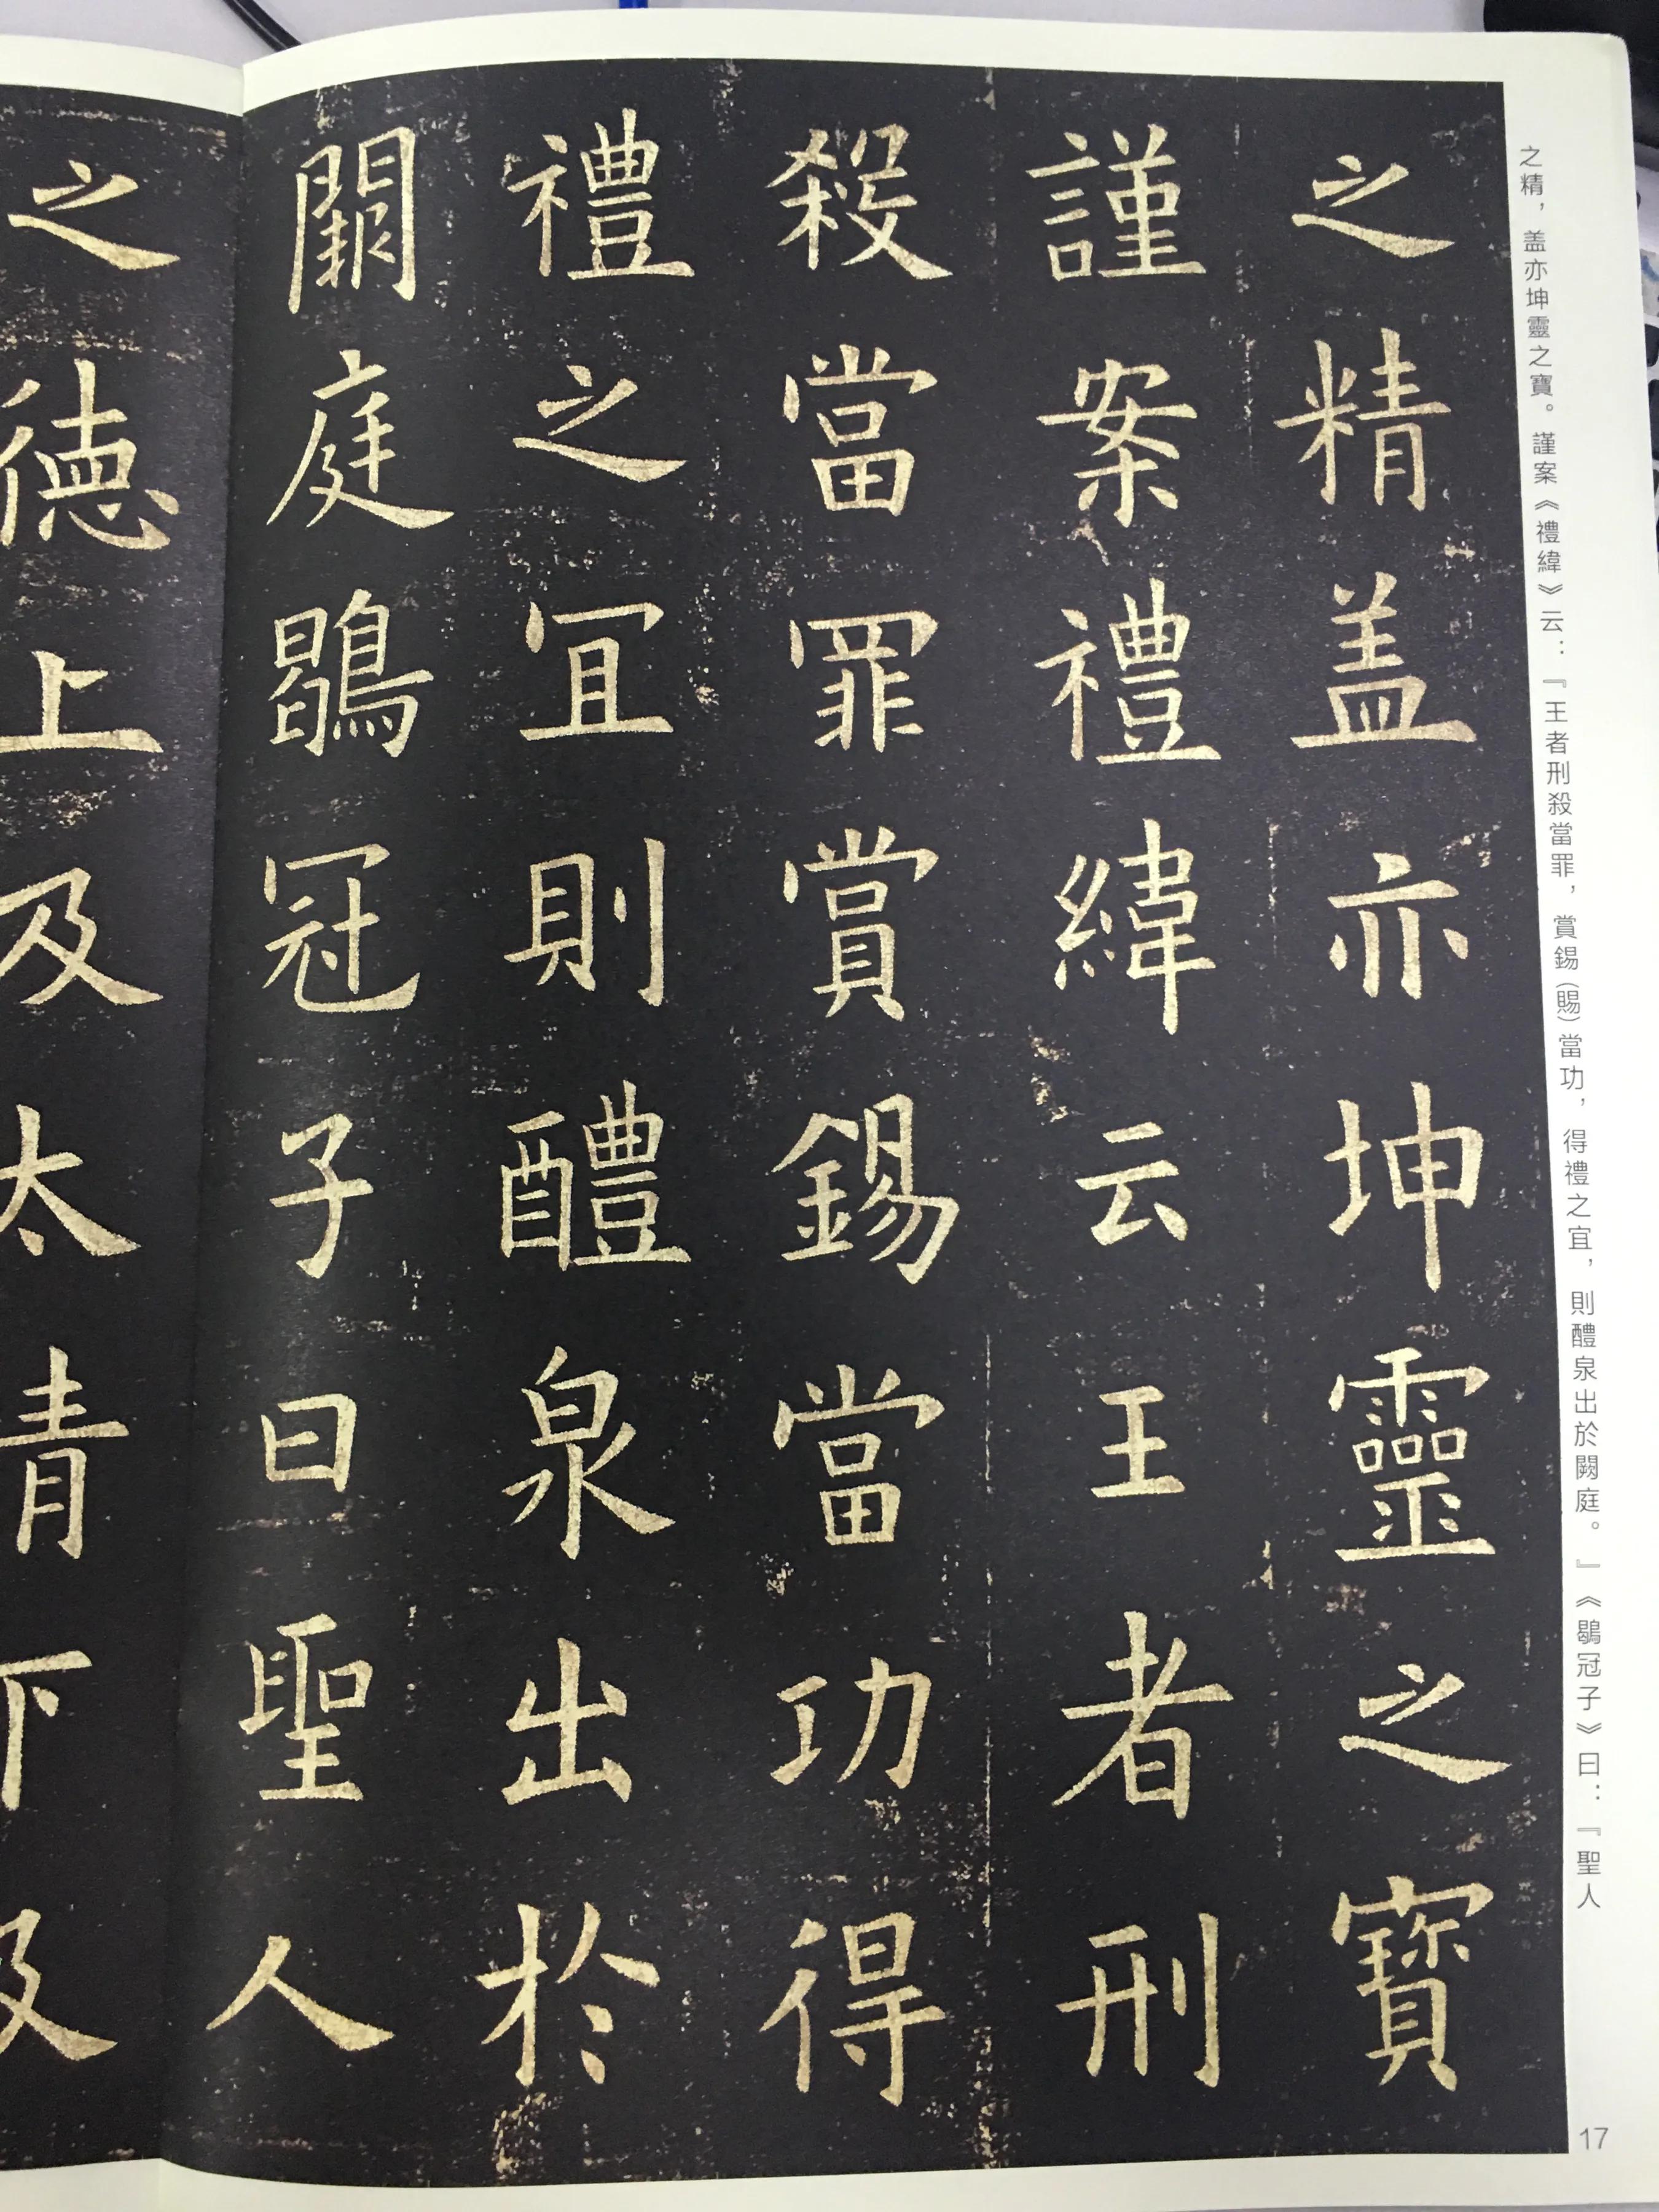 之精，盖亦坤靈之寶。謹案《禮緯》云：『王者刑殺當罪，賞錫（賜）當功，得禮之宜，則醴泉出於闕庭。』《鶡冠子》曰：『聖人
之精盖亦坤靈之寶
謹案禮緯云王者刑
殺當罪賞錫當功得
禮之冝則醴泉出於
闕庭鶡冠子曰聖人
之德上及太清下及
17